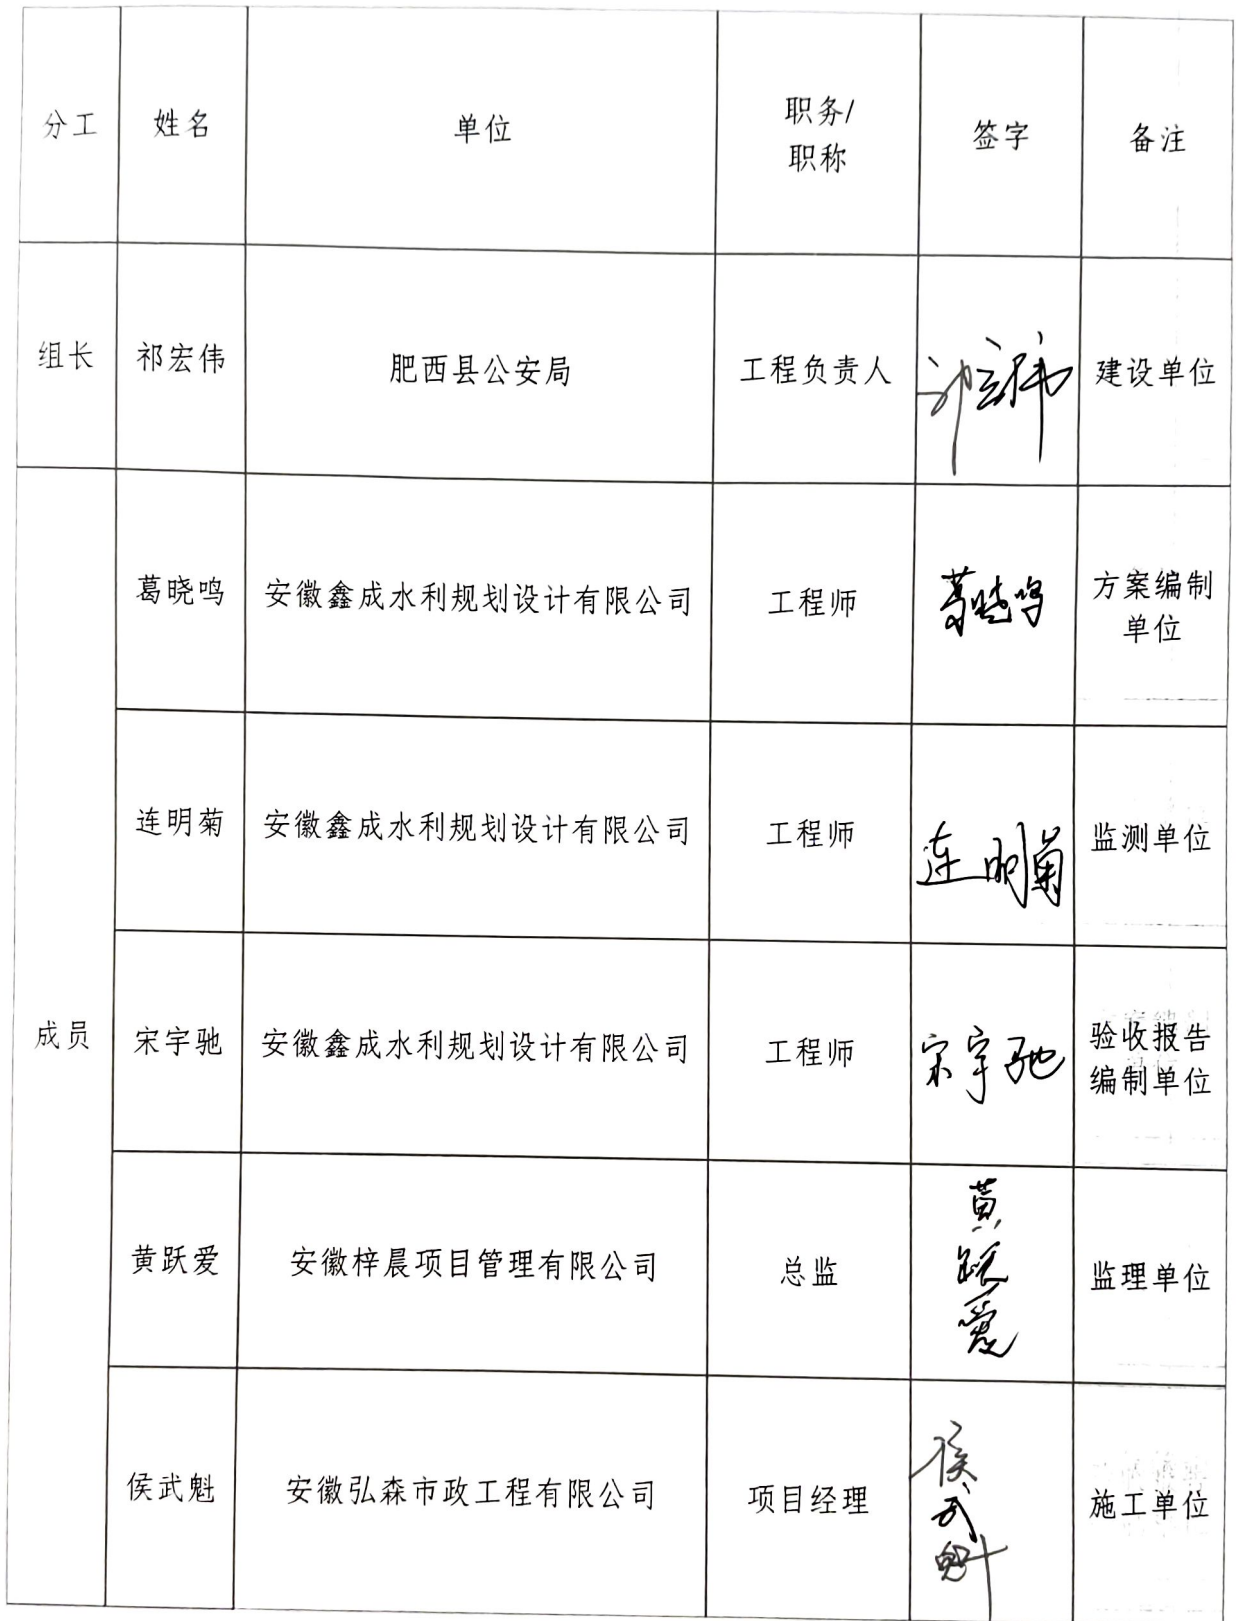 分工 姓名 单位 职务/ 签字 备注
职称
组长 祁宏伟 肥西县公安局 工程负责人 祁宏伟 建设单位
成员
葛晓鸣 安徽鑫成水利规划设计有限公司 工程师 葛晓鸣 方案编制
单位
连明菊 安徽鑫成水利规划设计有限公司 工程师 连明菊 监测单位
宋宇驰 安徽鑫成水利规划设计有限公司 工程师 宋宇驰 验收报告
编制单位
黄跃爱 安徽梓晨项目管理有限公司 总监 黄跃爱 监理单位
侯武魁 安徽弘森市政工程有限公司 项目经理 侯武魁 施工单位